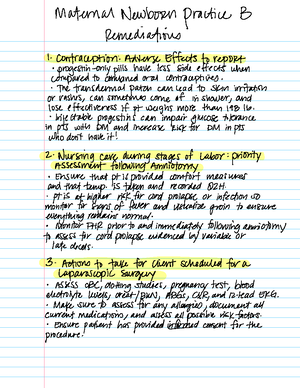 Maternal Newborn Practice B
Remediations
1. Contraception: Adverse Effects to report
• progestin-only pills have less side effects when
compared to combined oral contraceptives.
• The transdermal patch can lead to skin irritation
or rashes, can sometimes come off in shower, and
lose effectiveness if pt weighs more than 198 lbs.
• Injectable progestins can impair glucose tolerance
in pts with DM and increase risk for DM in pts
who don't have it!
2. Nursing care during stages of Labor: priority
Assessment following Amniotomy
• Ensure that pt is provided comfort measures
and that temp. is taken and recorded Q2H.
• Pt is at higher risk for cord prolapse or infection so
monitor for signs of fever and to ensure
everything remains normal.
• Monitor FHR prior to and immediately following amniotomy
to assess for cord prolapse evidenced by variable or
late decels.
3. Actions to take for client scheduled for a
Laparoscopic Surgery
• Assess CBC, clotting studies, pregnancy test, blood
electrolyte levels, creat/BUN, ABGs, CXR, and 12-lead EKG.
• Make sure to assess for any allergies, document all
current medications, and assess all possible risk factors.
• Ensure patient has provided informed consent for the
procedure.